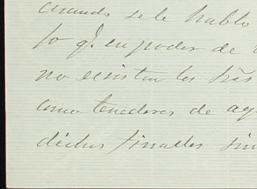 cuando se le hablo
fo qe. en poder de
no existan los
como tenedores de
dichos finados